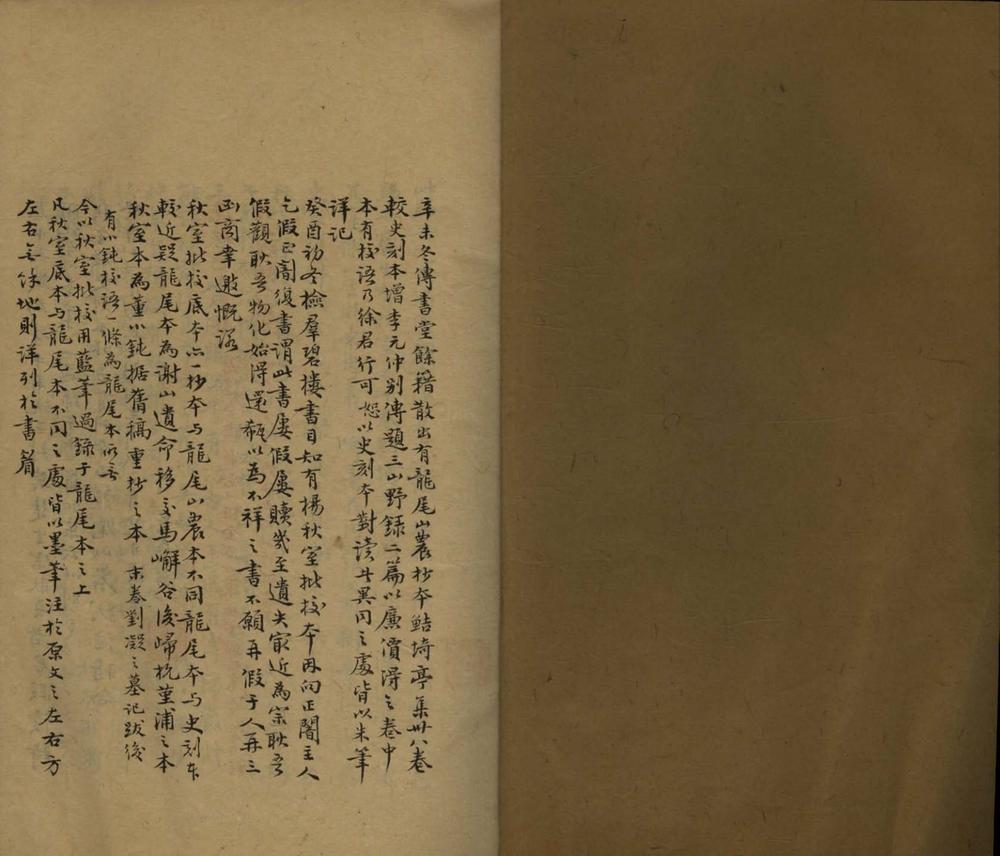 辛未冬傳書堂餘籍散出有龍尾山農抄本鮚埼亭集卅八卷
較史刻本增李元仲別傳題三山野錄二篇以廉價得之卷中
本有校語乃徐君行可恕以史刻本對讀其異同之處皆以朱筆
詳記
癸酉初冬檢羣碧樓書目知有楊秋室批校本因向正闇主人
乞假正闇復書謂此書屢假屢贖幾至遺失最近為宗耿吾
假觀耿吾物化始得還甌以為不祥之書不願再假于人再三
函商幸邀慨諾
秋室批校底本亦一抄本与龍尾山農本不同龍尾本与史刻本
較近疑龍尾本為謝山遺命移交馬嶰谷後歸杭堇浦之本
秋室本為董小鈍据舊稿重抄之本 末卷劉凝之墓記跋後
有小鈍校語一條為龍尾本所無
今以秋室批校用藍筆過錄于龍尾本之上
凡秋室底本与龍尾本不同之處皆以墨筆注於原文之左右方
左右無餘地則詳列於書眉